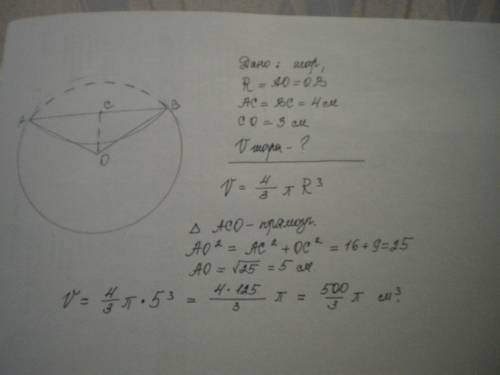 Дано: шар,
R = AO = OB
AC = BC = 4 см
CO = 3 см
V шара - ?
V = 4/3 π R³
C
A
B
O
△ ACO - прямоуг.
AO² = AC² + OC² = 16 + 9 = 25
AO = √25 = 5 см
V = 4/3 π • 5³ = 4•125/3 π = 500/3 π см³.